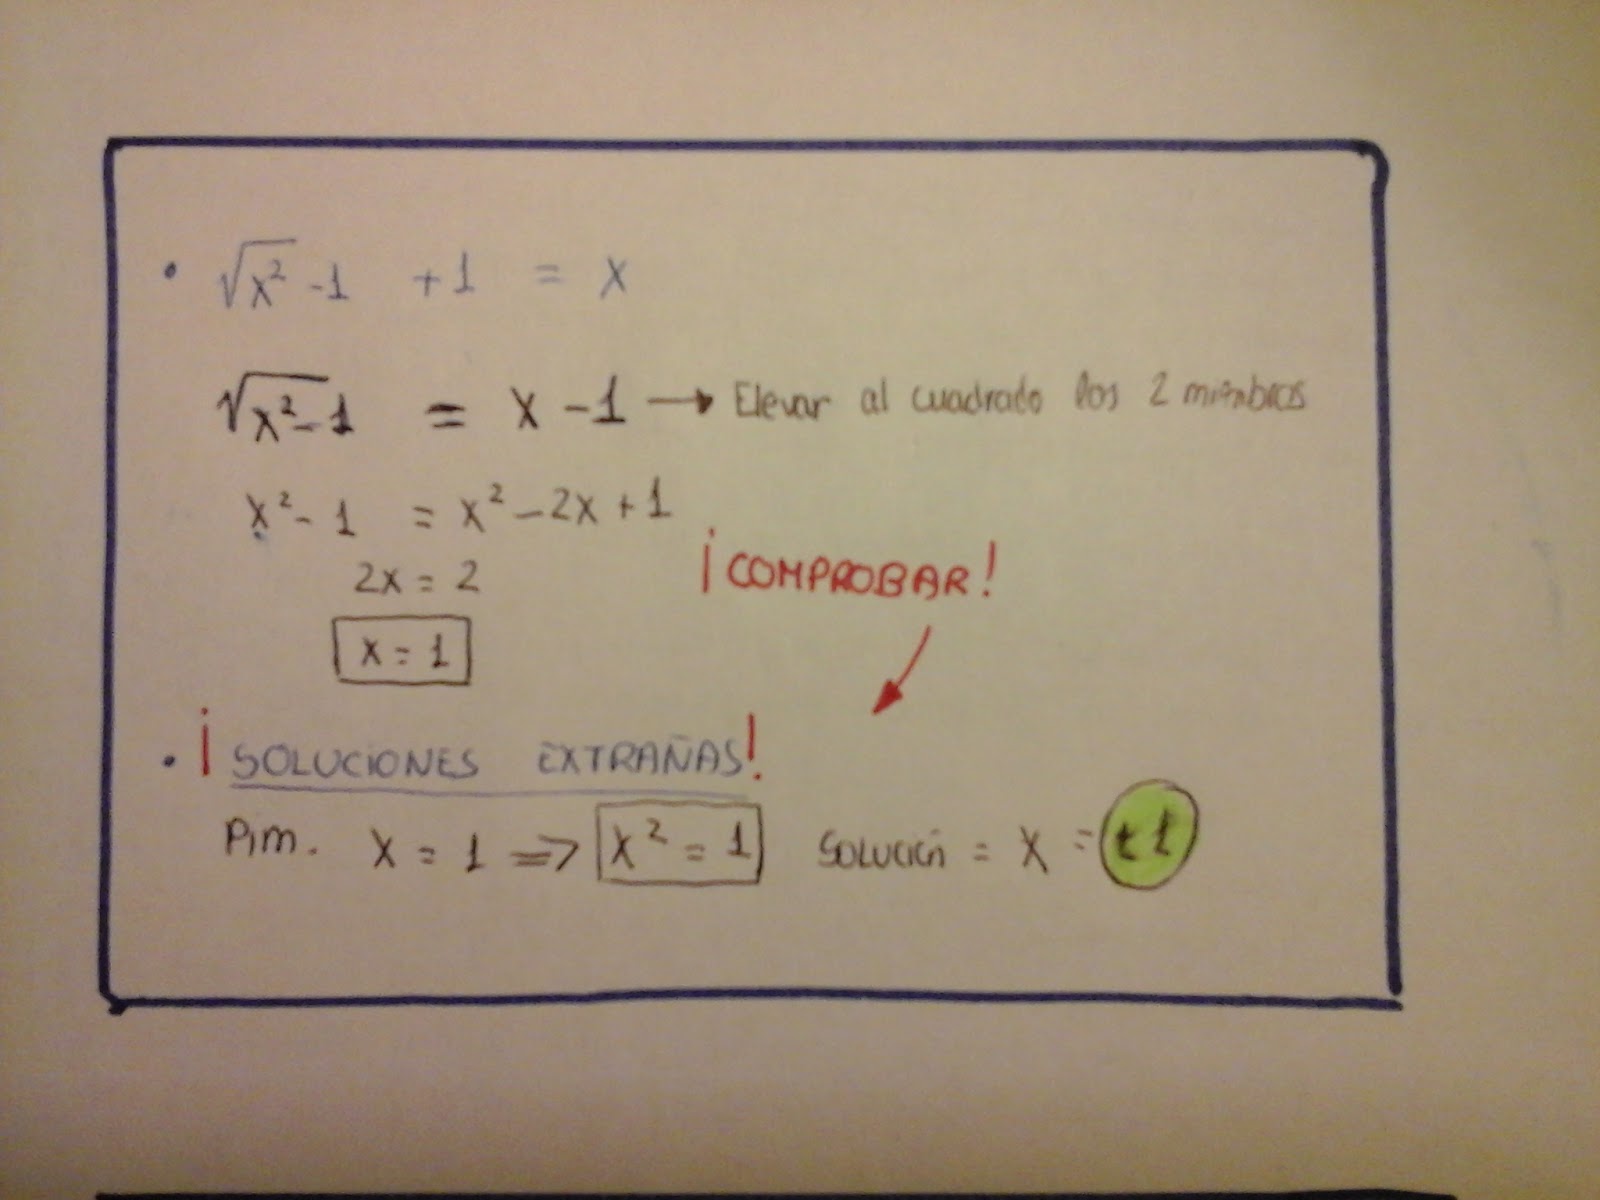 • √x² -1 +1 = x
√x²-1 = x -1 → Elevar al cuadrado los 2 miembros
x² - 1 = x² - 2x + 1
2x = 2
¡COMPROBAR!
x = 1
• ¡SOLUCIONES EXTRAÑAS!
P.im. x = 1 => x² = 1 SOLUCIÓN = x = ±1